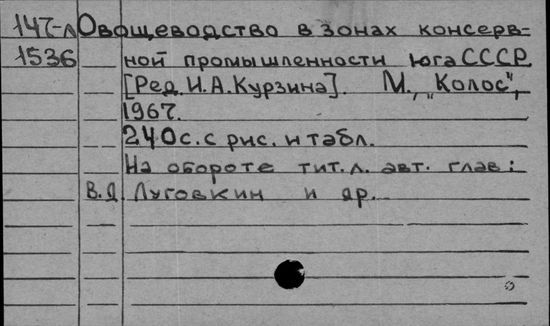 147-л Овощеводство в зонах консерв-
1536 ной промышленности юга СССР.
[Ред. И.А.Курзина]. М., "Колос",
1967.
240с. с рис. и табл.
На обороте тит. л. авт. глав:
В.Я. Луговкин и др.